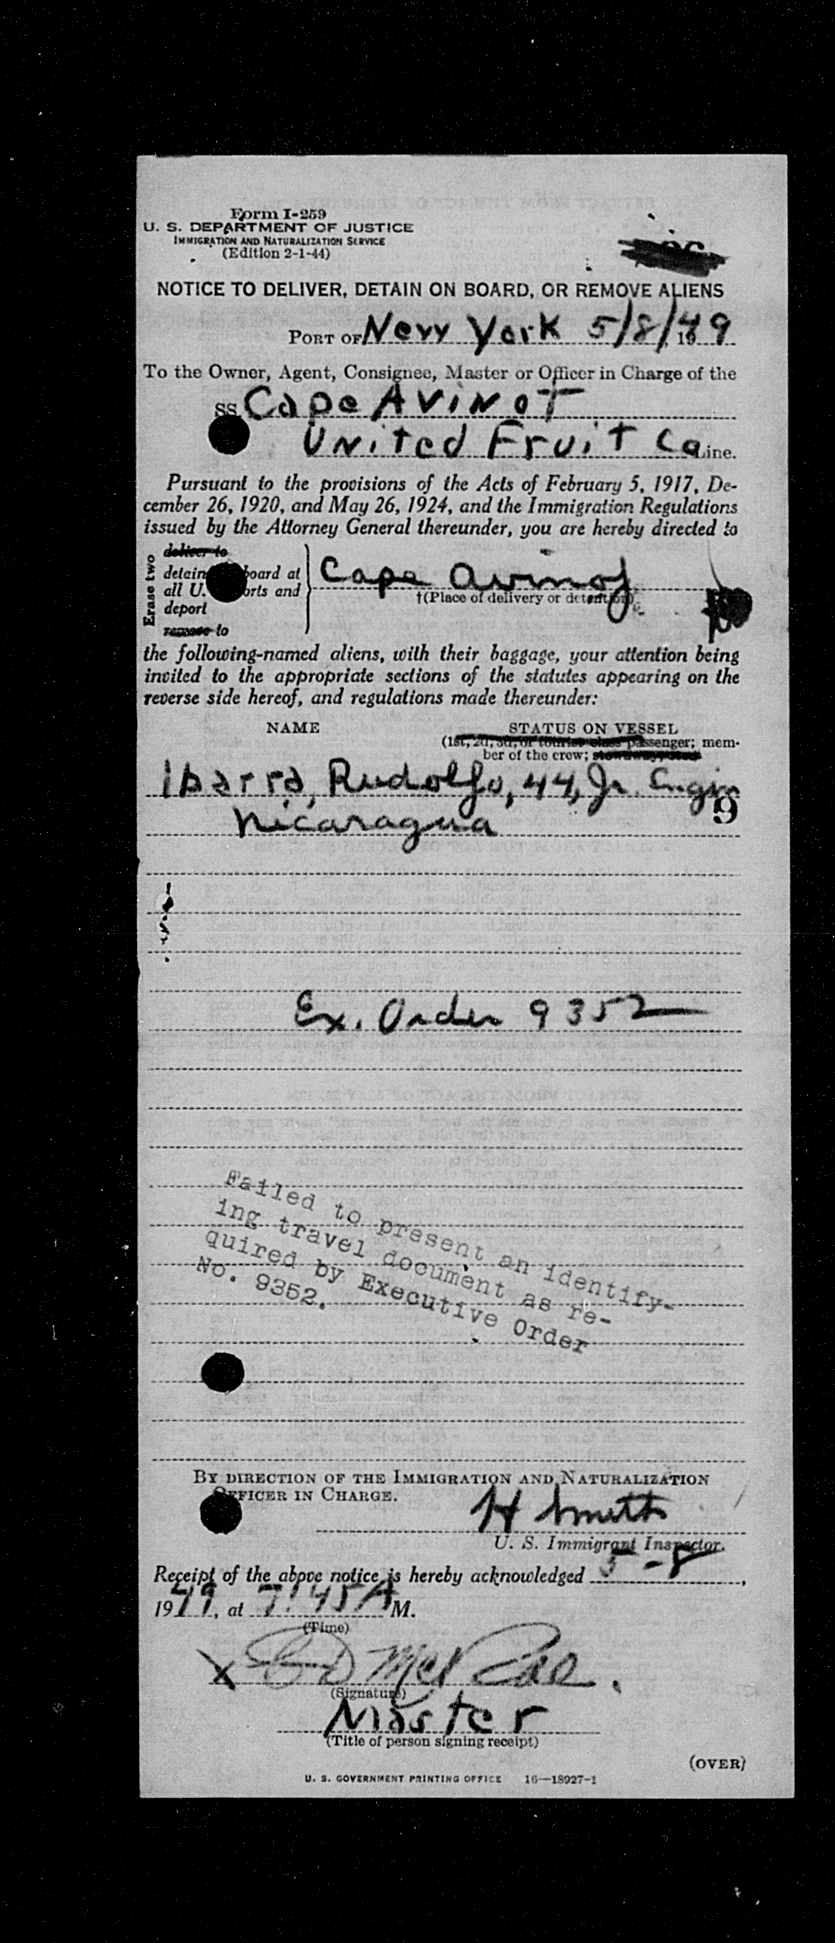 Form I-259
U. S. DEPARTMENT OF JUSTICE
IMMIGRATION AND NATURALIZATION SERVICE
(Edition 2-1-44)
NOTICE TO DELIVER, DETAIN ON BOARD, OR REMOVE ALIENS
PORT OF New York 5/8/1949
To the Owner, Agent, Consignee, Master or Officer in Charge of the
SS. Cape Avinof
United Fruit Co Line.
Pursuant to the provisions of the Acts of February 5, 1917, De-
cember 26, 1920, and May 26, 1924, and the Immigration Regulations
issued by the Attorney General thereunder, you are hereby directed to
Erase two
deliver to
detain board at
all U. orts and
deport
remove to
Cape Avinof
†(Place of delivery or detention)
the following-named aliens, with their baggage, your attention being
invited to the appropriate sections of the statutes appearing on the
reverse side hereof, and regulations made thereunder:
NAME STATUS ON VESSEL
(1st, 2d, 3d, or tourist class passenger; mem-
ber of the crew;
Ibarra, Rudolfo, 44, Jr. Engin
9
Nicaragua
Ex. Order 9352
Failed to present an identify-
ing travel document as re-
quired by Executive Order
No. 9352.
BY DIRECTION OF THE IMMIGRATION AND NATURALIZATION
OFFICER IN CHARGE.
H Smith
U. S. Immigrant Inspector.
Receipt of the above notice is hereby acknowledged 5-8,
1949, at 7:45 A M.
(Time)
X McRae.
(Signature)
Master
(Title of person signing receipt)
(OVER)
U. S. GOVERNMENT PRINTING OFFICE 16—18927-1